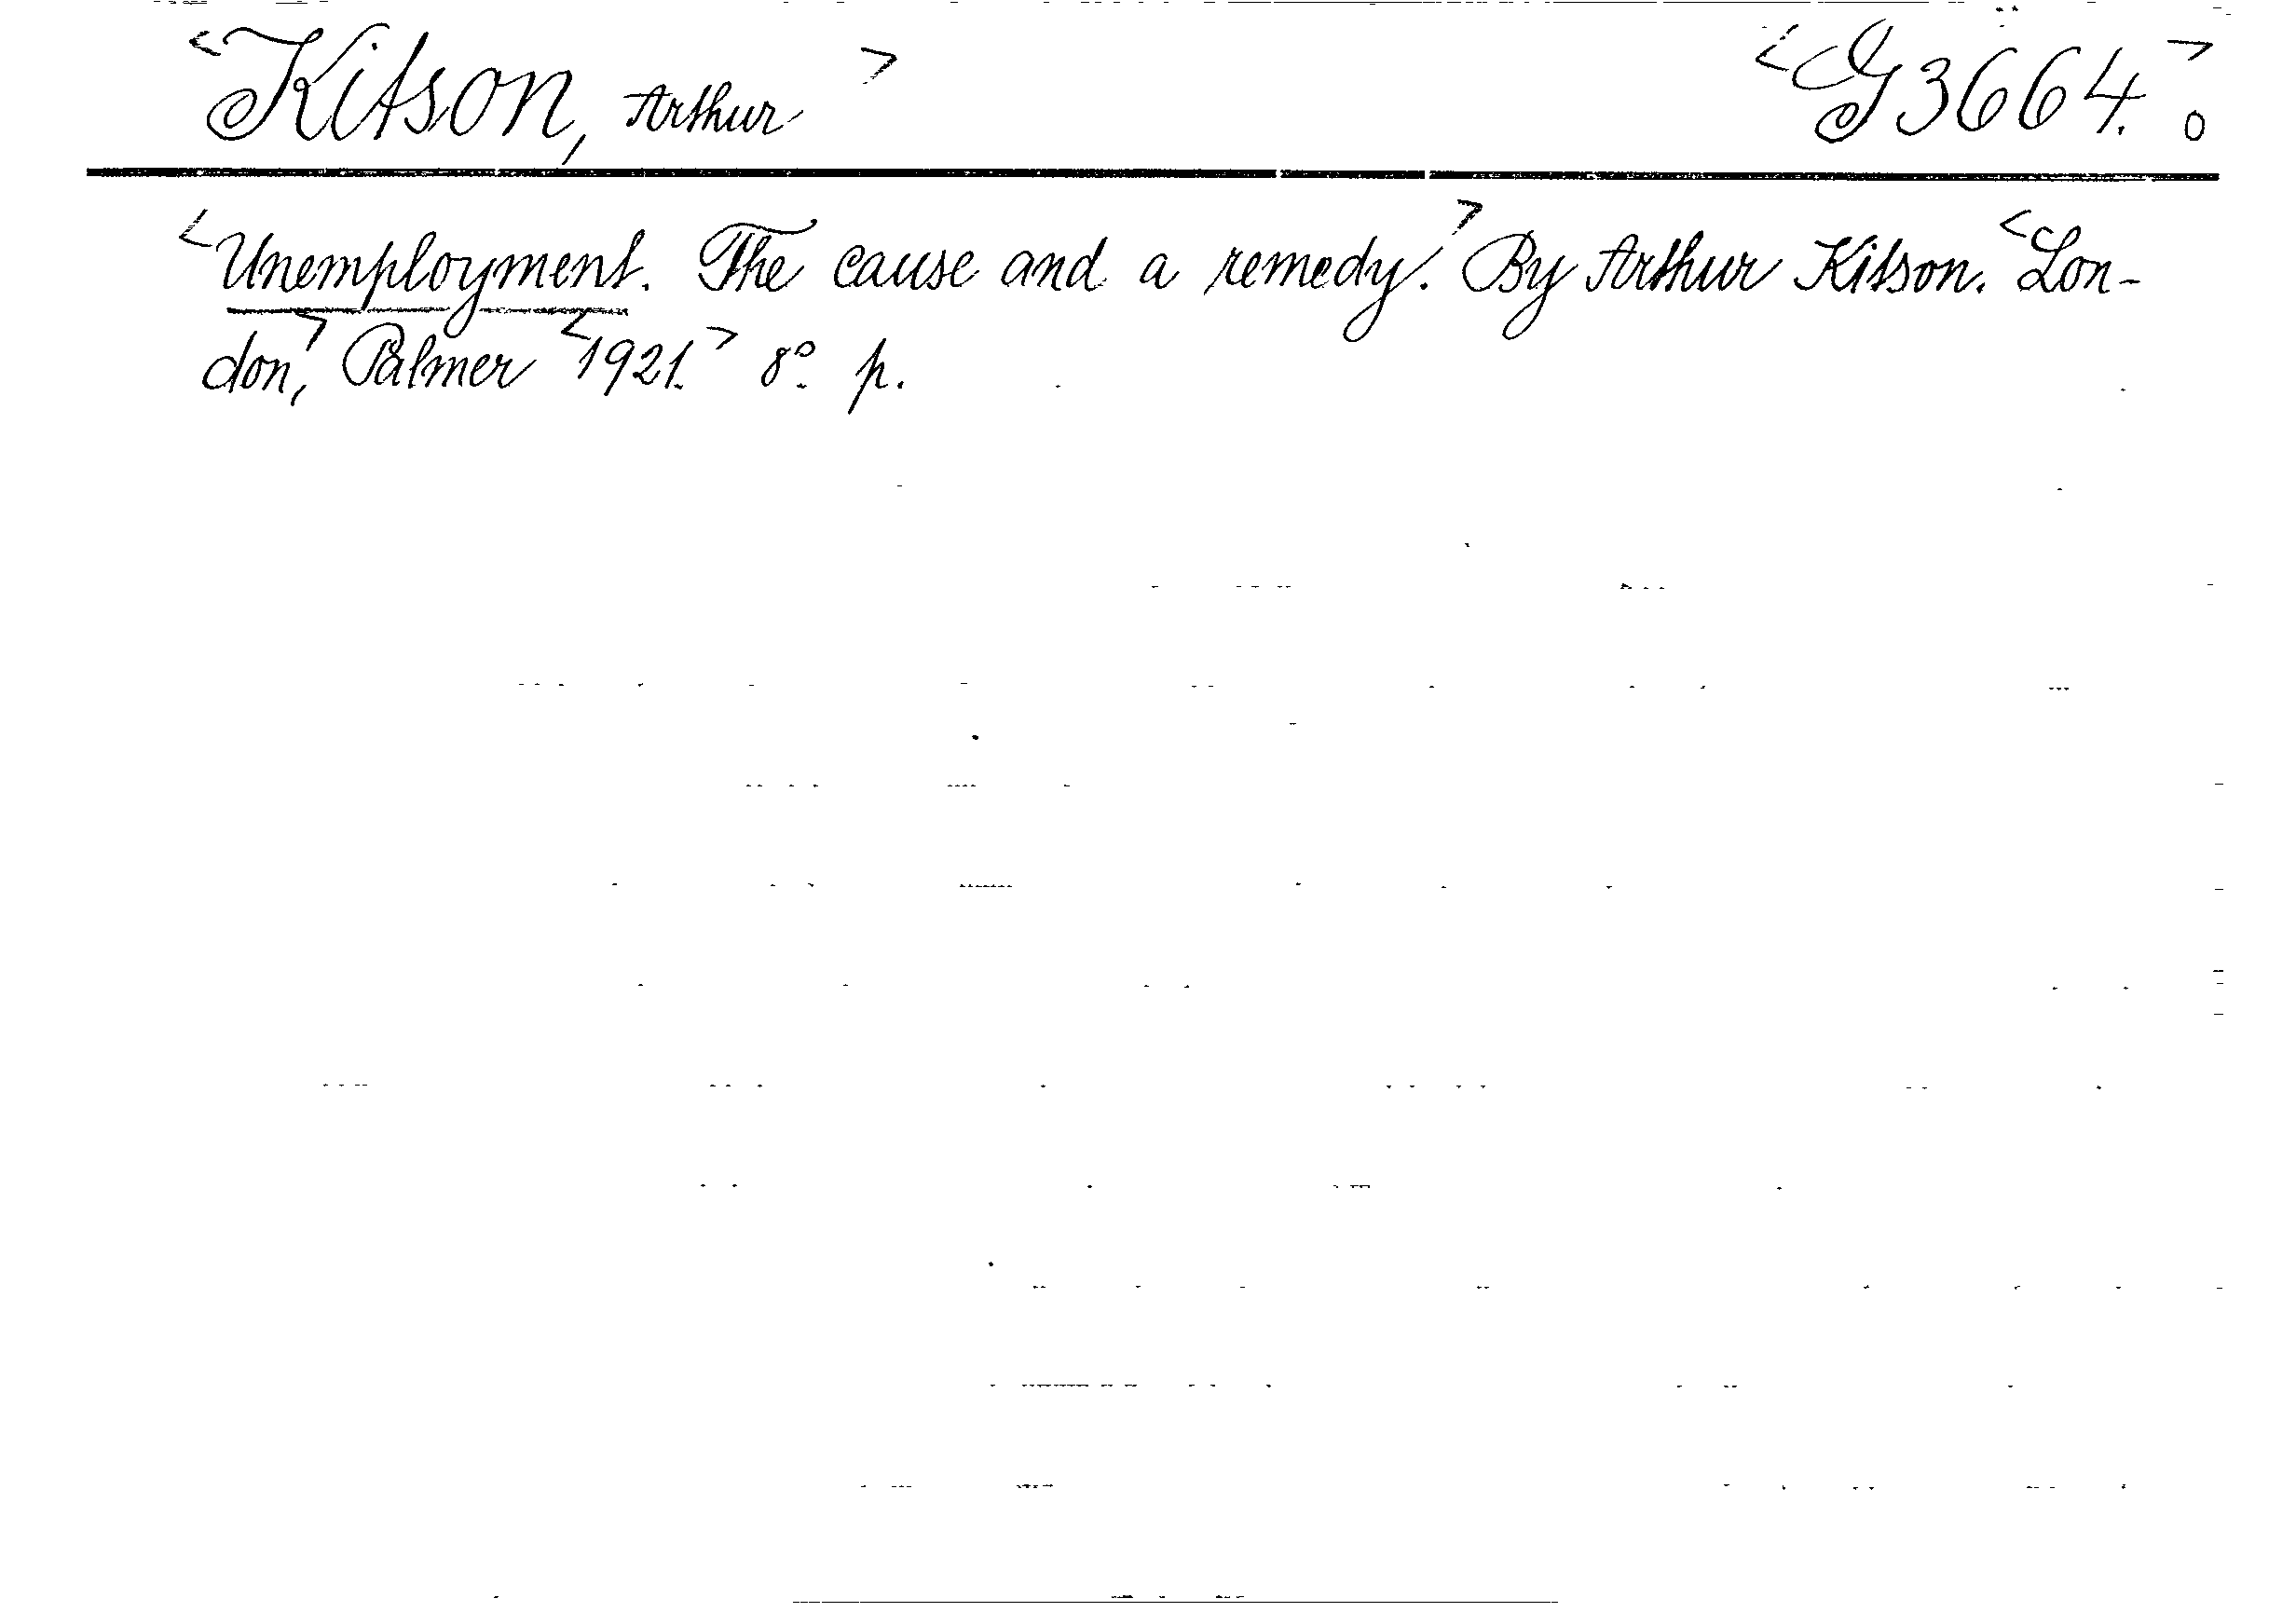 <Kitson, Arthur> <G 3664.> o
<Unemployment. The cause and a remedy.> By Arthur Kitson. <Lon-
don,> Palmer <1921.> 8° p.